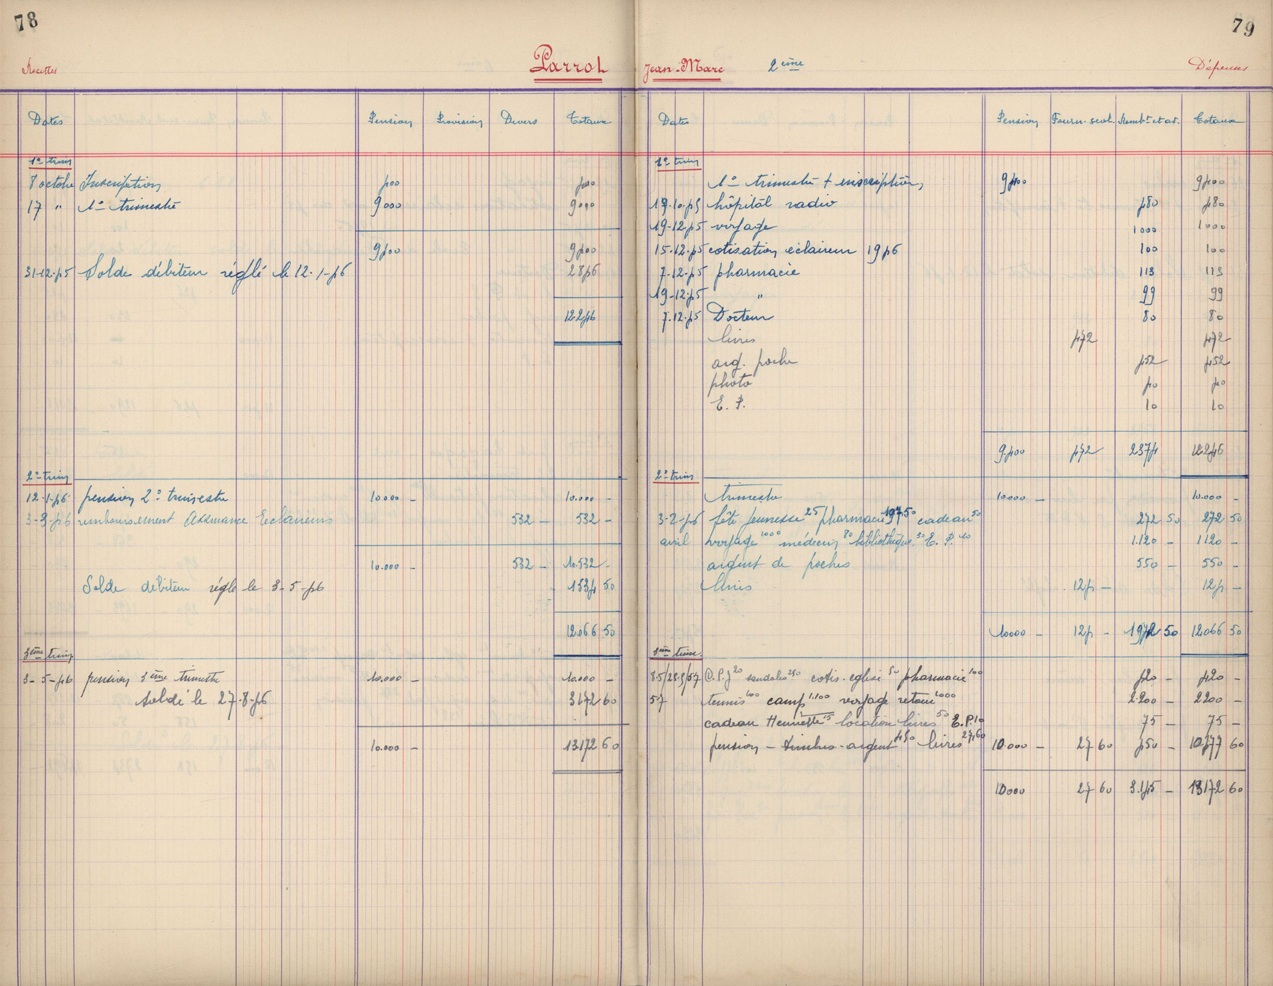 78
Recettes Parrot
Dates Pension Provision Divers Totaux
1er trim
8 octobre Inscription 400 400
17 " 1er trimestre 9000 9000
9400 9400
31-12-45 Solde débiteur réglé le 12-1-46 2846
12246
2e trim
12-1-46 pension 2e trimestre 10.000 - 10.000 -
3-3-46 remboursement Assurance Eclaireurs 532 - 532 -
10.000 - 532 - 10.532 -
Solde débiteur réglé le 3-5-46 1534 50
12066 50
3ème trim
3-5-46 pension 3ème trimestre 10.000 - 10.000 -
soldé le 27-8-46 3172 60
10.000 - 13172 60
79
Jean-Marc 2ème Dépenses
Dates Pension Fourn-scol Remb et av. Totaux
1er trim
1er trimestre + inscription 9400 9400
hôpital radio 480 480
19-12-45 voyage 1000 1000
15-12-45 cotisation eclaireur 1946 100 100
7-12-45 pharmacie 113 113
19-12-45 " 99 99
7-12-45 Docteur 80 80
livres 472 472
arg. poche 452 452
photo 40 40
E. P. 10 10
9400 472 2374 12246
2e trim
trimestre 10000 - 10.000 -
3-2-46 fête jeunesse 25 pharmacie 197 50 cadeau 50 272 50 272 50
avril voyage 1000 médecin 80 bibliothèque 30 E. P. 10 1.120 - 1120 -
argent de poches 550 - 550 -
livres 124 - 124 -
10000 - 124 - 1942 50 12066 50
3ème trim.
cotis-eglise 50 pharmacie 100 420 - 420 -
tennis 100 camp 1.100 voyage retour 1000 2200 - 2200 -
cadeau Henriette 15 location livres 50 E.P. 10 75 - 75 -
pension - timbres-argent 450 livres 27,60 10.000 - 27 60 450 - 10477 60
10000 27 60 3.145 - 13172 60